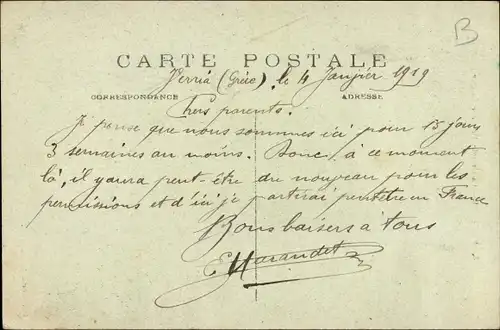 B
CARTE POSTALE
Verria (Grèce), le 4 Janvier 1919
CORRESPONDANCE ADRESSE
Chers parents.
Je pense que nous sommes ici pour 15 jours
3 semaines au moins. Donc, à ce moment
là, il y aura peut-être du nouveau pour les
permissions et d'ici je partirai peut-être en France
Bons baisers à tous